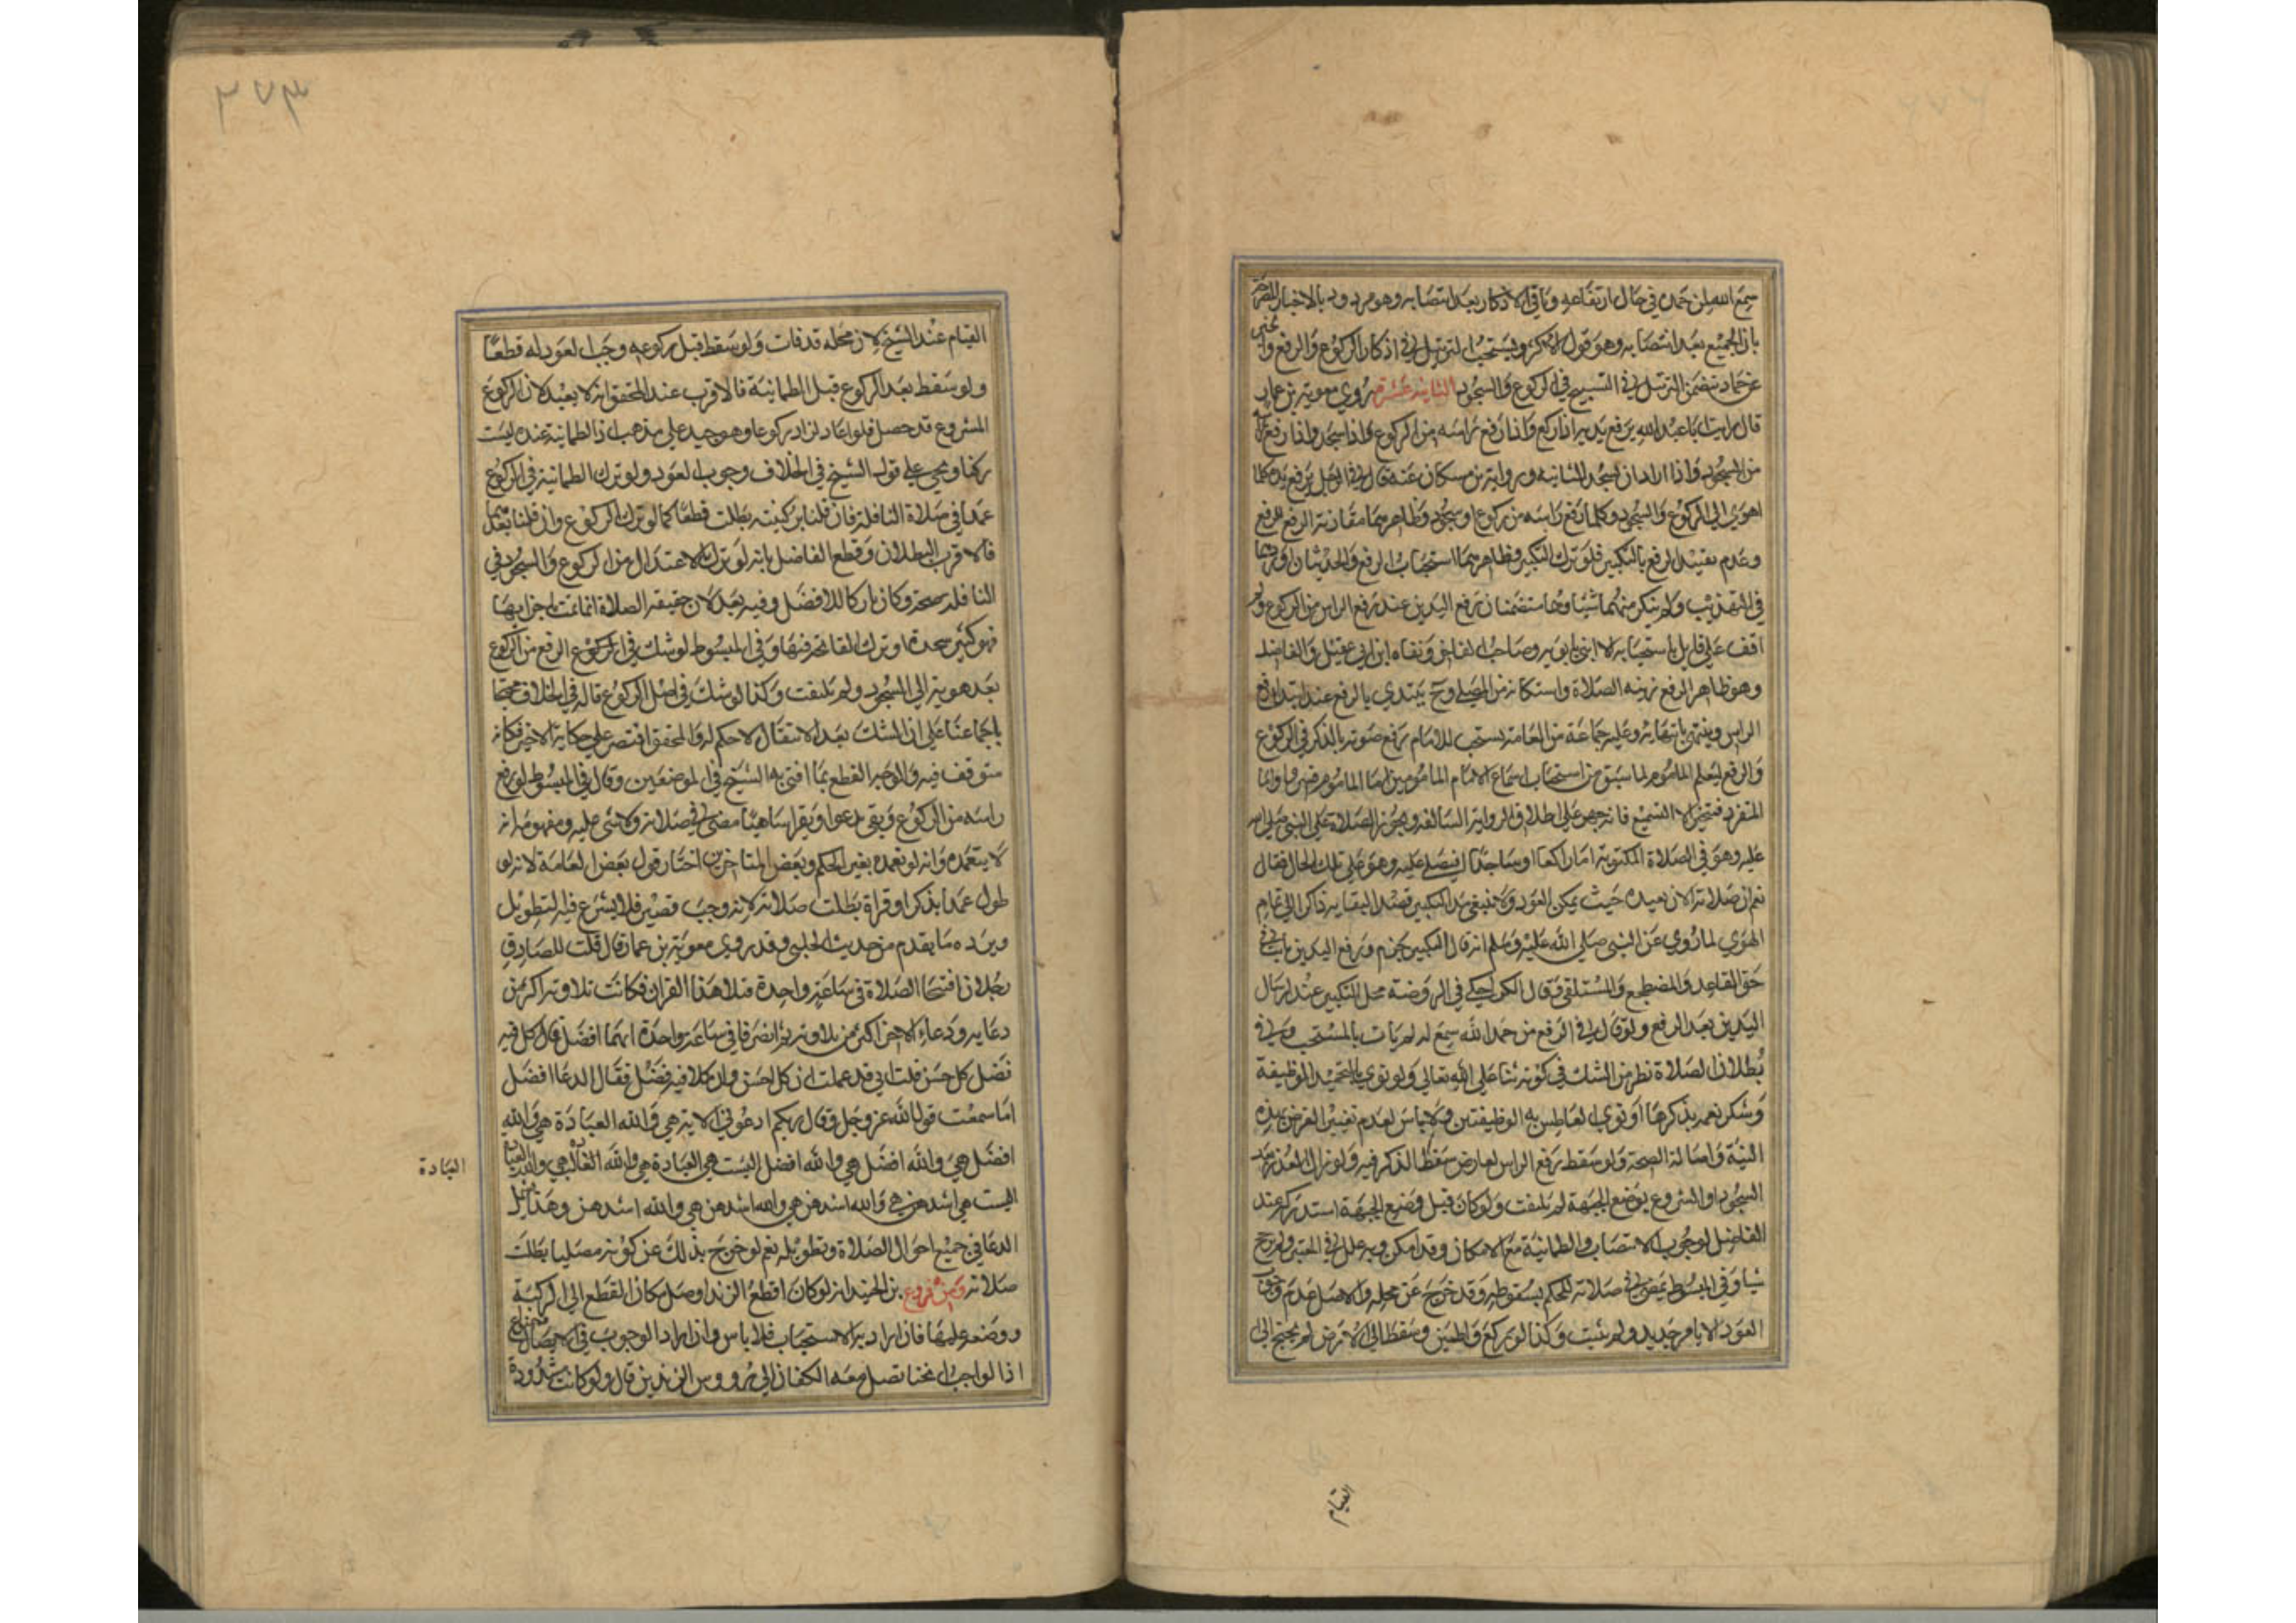 سمع الله لمن حمده في حال ارتفاعه وباقي الاذكار بعد انتصابه وهو مردود بالاخبار المصرحة
بان الجميع بعد انتصابه وهو قول الاكثر ويستحب الترتيل في اذكار الركوع والرفع وا
عن حماد تضمن الترتيل في التسبيح في الركوع والسجود الثانية عشرة روي معوية بن عمار
قال رايت ابا عبد الله يرفع يديه اذا ركع واذا رفع راسه من الركوع واذا سجد واذا رفع راسه
من السجود واذا اراد ان يسجد الثانية ورواية بن مسكان عنه قال في الرجل يرفع يده كلما
اهوى الي الركوع والسجود وكلما رفع راسه من ركوع او سجود وظاهرهما مقارنة الرفع للرفع
وعدم تقييد الرفع بالتكبير فلو ترك التكبير فظاهرهما استحباب الرفع والحديثان اوردهما
في التهذيب ولم ينكر منهما شيئا وهما متضمنان رفع اليدين عند رفع الراس من الركوع ولم
اقف على قايل باستحبابه الا ابني بابويه وصاحب الفاخر ونفاه ابن ابي عقيل والفاضل
وهو ظاهر الرفع زينة الصلاة واستكانة من المصلي وح يبتدي بالرفع عند ابتداء رفع
الراس وينتهي بانتهايه وعليه جماعة من العامة يستحب للامام رفع صوته بالذكر في الركوع
والرفع ليعلم الماموم لما سبق من استحباب اسماع الامام المامومين اما الماموم فيسر واما
المنفرد فمخير الا التسميع فانه جهر على اطلاق الرواية السالفة ويجوز الصلاة على النبي صلى الله
عليه وهو في الصلاة المكتوبة اما راكعا او ساجدا فيصلي عليه وهو على تلك الحال فقال
نعم ان صلاته الان بعيده حيث يمكن العود ولا ينبغي مد التكبير قصدا لبقايه ذاكرا الي تمام
الهوي لما روي عن النبي صلى الله عليه وسلم انه قال التكبير جزم ورفع اليدين ثابت في
حق القاعد والمضطجع والمستلقي وقال الكراجكي في الروضة محل التكبير عند ارسال
اليدين بعد الرفع ولو قال في الرفع من حمد الله سمع له لم يات بالمستحب وفي
بطلان الصلاة نظر من الشك في كونه ثناء على الله تعالى ولو نوى بالتحميد الوظيفة
وشكر نعمه يذكرها او نوى العاطس به الوظيفتين فلا باس لعدم تغيير الغرض بهذه
النية واصالة الصحة ولو سقط رفع الراس لعارض سقط الذكر فيه ولو زال العذر بعد
السجود او الشروع بوضع الجبهة لم يلتفت ولو كان قبل وضع الجبهة استدركه عند
الفاضل لوجوب الانتصاب والطمانية مع الامكان وقد امكن وبه علل في المعتبر ولم يرجح
شيا وفي المبسوط يمضي في صلاته للحكم بسقوطه وقد خرج عن محله والاصل عدم وجوب
العود الا بامر جديد ولم يثبت وكذا لو ركع واطمين وسقط الى الارض لم يحتج الى
القيام
٣٧٣
القيام عند الشيخ لان محله قد فات ولو سقط قبل ركوعه وجب العود له قطعا
ولو سقط بعد الركوع قبل الطمانينة فالاقرب عند المحقق انه لا يعيد لان الركوع
المشروع قد حصل فلو اعاد لزاد ركوعا وهو جيد علي مذهبه اذ الطمانينة عنده ليست
ركنا ويجي علي قول الشيخ في الخلاف وجوب العود ولو ترك الطمانينة في الركوع
عمدا في صلاة النافلة فان قلنا بركنيته بطلت قطعا كما لو ترك الركوع وان قلنا بعدمها
فالاقرب البطلان وقطع الفاضل بانه لو ترك الاعتدال من الركوع والسجود في
النافلة صحت وكان تاركا للافضل وفيه بعد لان حقيقة الصلاة انما تتم باجزايها
فهو كنير سجدة او ترك الفاتحة فيها وفي المبسوط لو شك في الركوع الرفع من الركوع
بعد هويه الي السجود ولم يلتفت وكذا لو شك في اصل الركوع قاله في الخلاف محتجا
باجماعنا على ان الشك بعد الانتقال لا حكم له والمحقق اقتصر على حكاية الاخير فكانه
متوقف فيه والوجه القطع بما افتى به الشيخ في الموضعين وقال في المبسوط لو رفع
راسه من الركوع وبقي يدعوا ويقرا ساهيا مضى في صلاته ولا شي عليه ومفهومه انه
لا يتعمده وانه لو تعمده بغير الحكم وبعض المتاخرين اختار قول بعض العامة لانه لو
طول عمدا بذكر او قراة بطلت صلاته لانه وجب قصير فلا يشرع فيه التطويل
ويرده ما يقدم من حديث الحلبي وقد روى معوية بن عمار قال قلت للصادق
رجلان افتتحا الصلاة في ساعة واحدة فتلا هذا القران فكانت تلاوته اكثر من
دعايه ودعا الاخر اكثر من تلاوته ثم انصرفا في ساعة واحدة ايهما افضل قال كل فيه
فضل كل حسن قلت اني قد علمت ان كل احسن وان كلا فيه فضل فقال الدعا افضل
اما سمعت قول الله عز وجل وقال ربكم ادعوني الاية هي والله العبادة هي والله
افضل هي والله افضل هي والله افضل اليست هي العبادة هي والله العبادة هي والله العبادة
العبادة
اليست هي اشدهن هي والله اشدهن هي والله اشدهن هي والله اشدهن وهذا يشمل
الدعا في جميع احوال الصلاة وتطويله نعم لو خرج بذلك عن كونه مصليا بطلت
صلاته ومن فروع بن الجنيد انه لو كان اقطع الزند اوصل مكان القطع الى الركبة
ووضعه عليها فان اراد به الاستحباب فلا باس وان اراد الوجوب في ايصال
اذ الواجب انحنا تصل معه الكفان الي رووس الزندين قال ولو كانت مشدودة